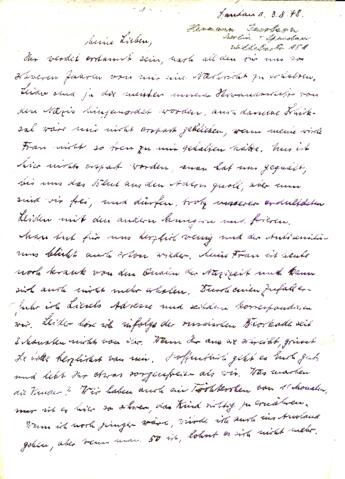 Spandau d. 3.8.48.
Hermann Jacobson
Berlin - Spandau
Meine Lieben,
Ihr werdet erstaunt sein, nach all den für uns so
schweren Jahren von mir eine Nachricht zu erhalten,
Leider sind ja die meisten unserer Verwandtschaft von
den Nazis hingemordet worden, auch dasselbe Schick-
sal wäre mir nicht erspart geblieben, wenn meine
Frau nicht so treu zu mir gehalten hätte. Uns ist
hier nichts erspart worden, man hat uns gequält,
bis uns das Blut aus den Adern quoll, aber nun
sind wir frei, und dürfen, trotz unserer erduldeten
Leiden mit den andern hungern und frieren.
Man tut für uns herzlich wenig und der Antisemitis-
mus blüht auch schon wieder. Meine Frau ist
noch krank von den der Nazizeit und kann
sich auch nicht mehr erholen. Durch einen Zufall er-
fuhr ich Liesels Adresse und seitdem korrespondieren
wir. Leider höre ich infolge der russischen Blockade seit
2 Monaten nichts von ihr. Wenn Ihr sie erreicht, grüsst
sie bitte herzlichst von mir. Hoffentlich geht es Euch gut
und lebt Ihr etwas sorgenfreier als wir. Was machen
die Kinder? Wir haben auch ein Töchterchen von Monaten,
nur ist es hier so schwer, das Kind richtig zu ernähren.
Wenn ich noch jünger wäre, würde ich auch ins Ausland
gehen, aber wenn man 50 ist, lohnt es sich nicht mehr.